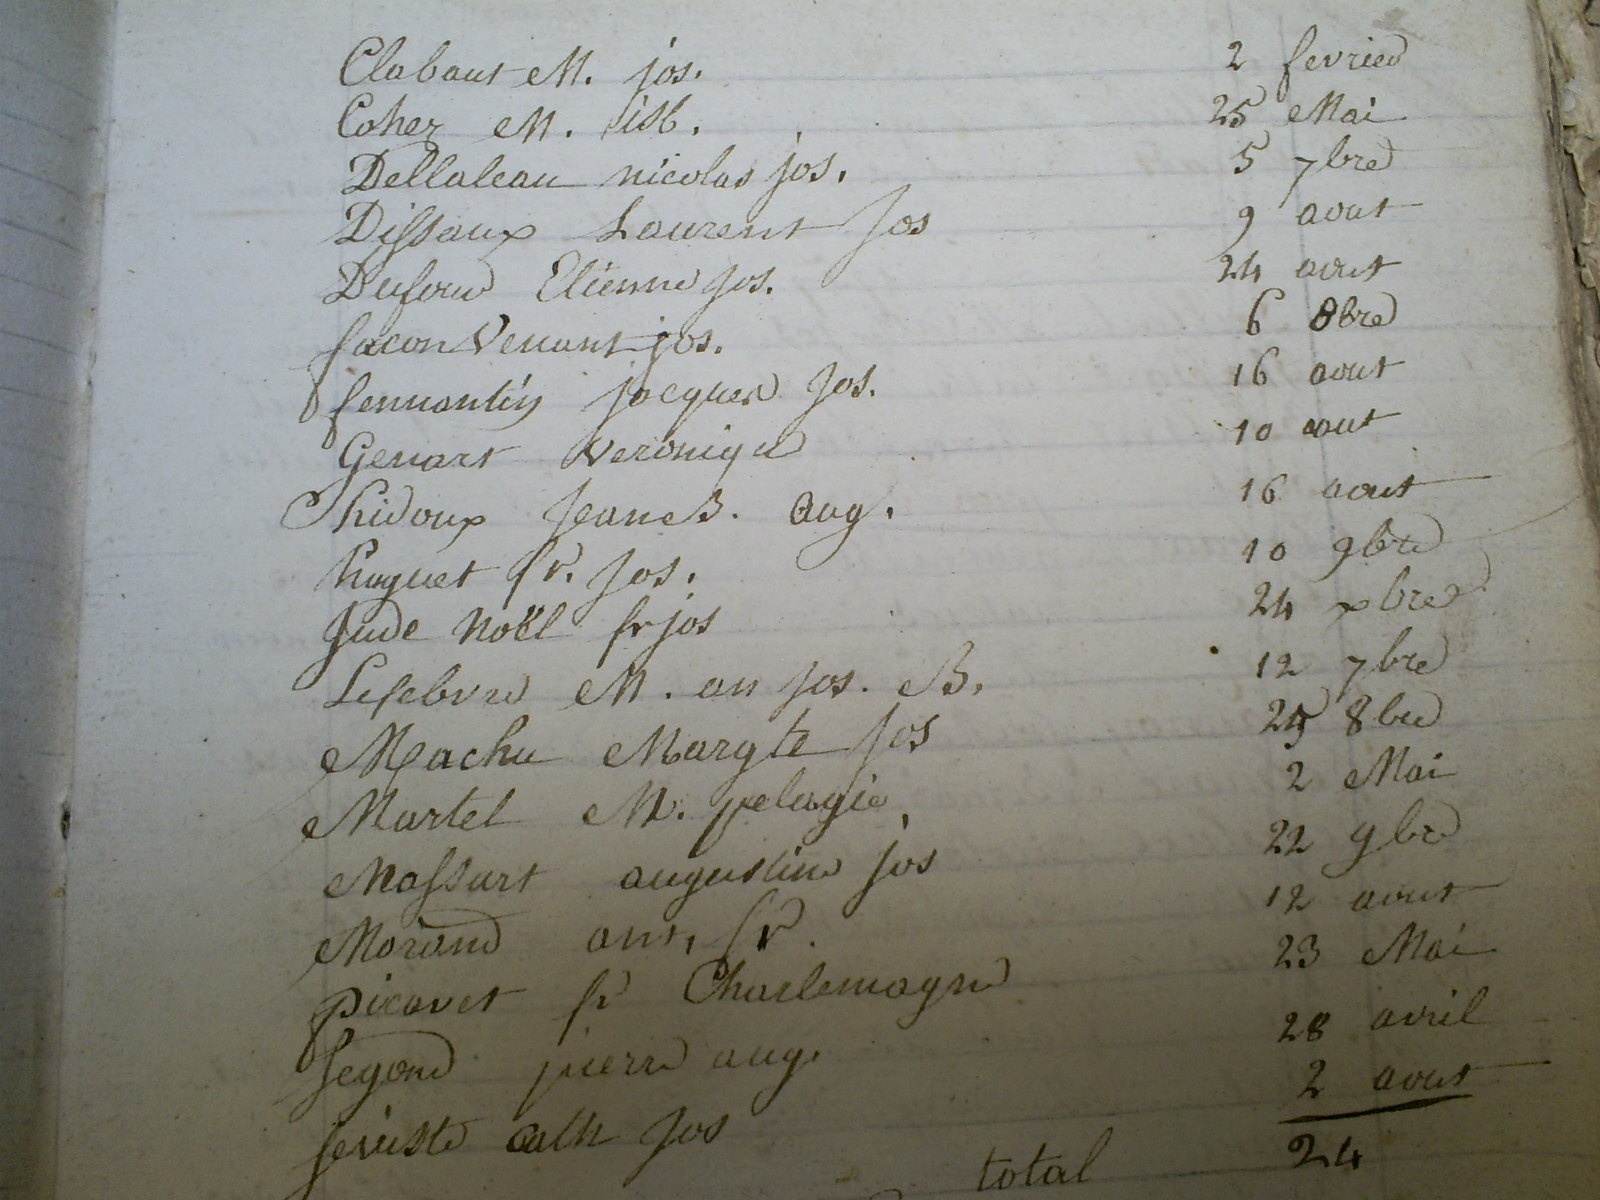 Clabaut M. jos. 2 fevrier
Coher M. isb. 25 Mai
Dellaleau nicolas jos. 5 7bre
Dissaux Laurent Jos 9 aout
Dufour Etienne Jos. 24 aout
facon Venant jos. 6 8bre
fennantin jacques Jos. 16 aout
Genart Veronique 10 aout
hidoux Jean B. aug. 16 aout
huguet fr. Jos. 10 9bre
Jude Noël fr jos 24 xbre
Lefebvre M. an jos. B. 12 7bre
Machu Margte Jos 25 8bre
Martel M. pelagie 2 Mai
Massart augustine jos 22 9bre
Morand ant. fr. 12 aout
picavet fr Charlemagne 23 Mai
Segond pierre aug. 28 avril
cath Jos 2 aout
total 24